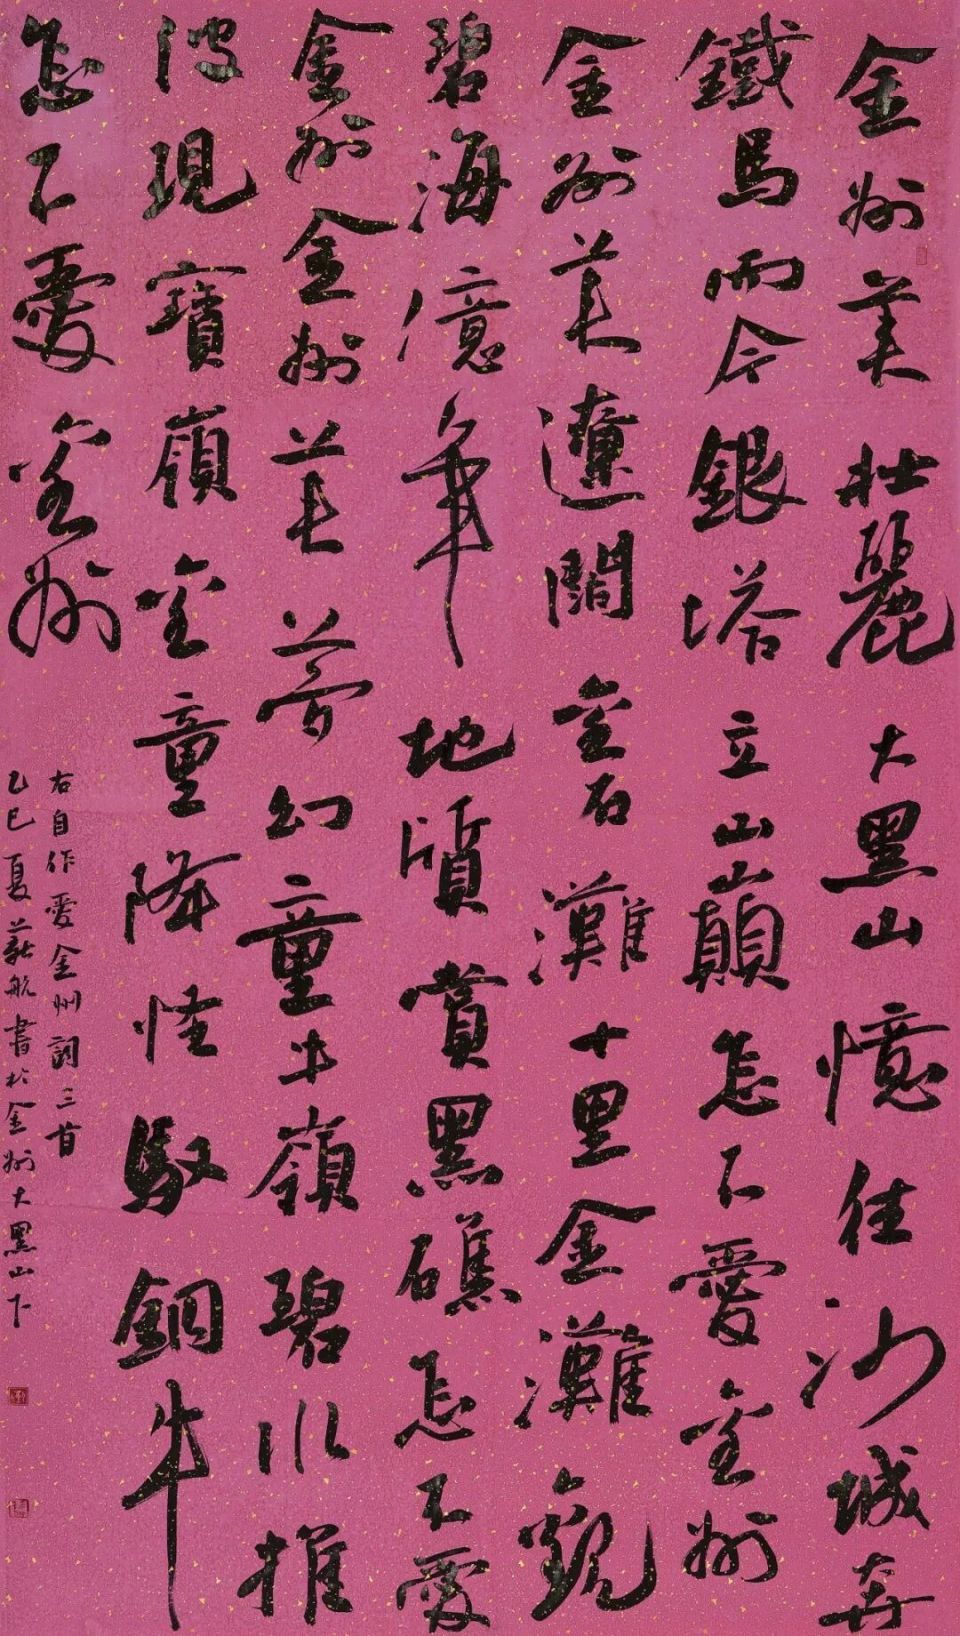 金州美壯麗大黑山憶往沙城奔
鐵馬而今銀塔立山巔怎不愛金州
金州美遼闊金石灘十里金灘觀
碧海億年地質賞黑礁怎不愛
金州金州美夢幻童牛嶺碧水推
波現寶嶺金童降怪馭銅牛
怎不愛金州
右自作愛金州詞三首
乙巳夏 航書於金州大黑山下